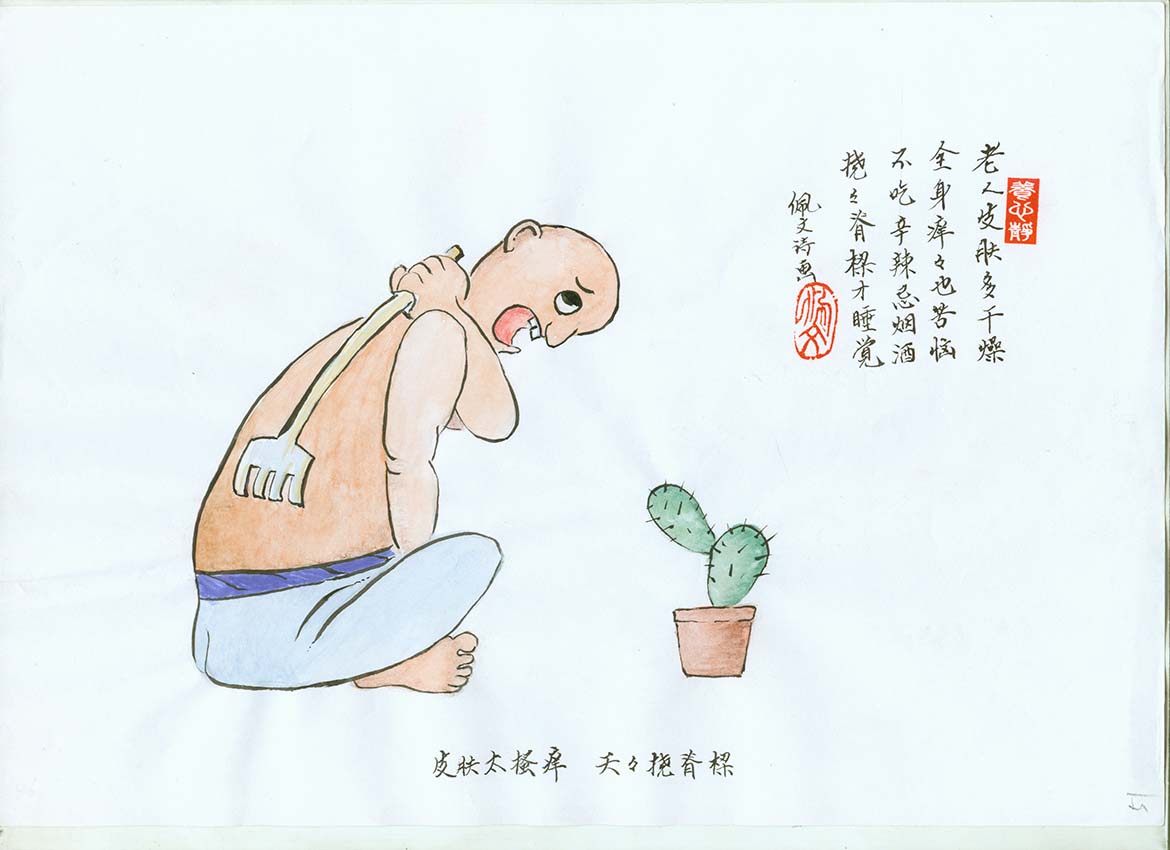 養心静
老人皮肤多干燥
全身痒々也苦恼
不吃辛辣忌烟酒
挠々脊樑才睡觉
佩文诗画
佩文
皮肤太搔痒 天々挠脊樑